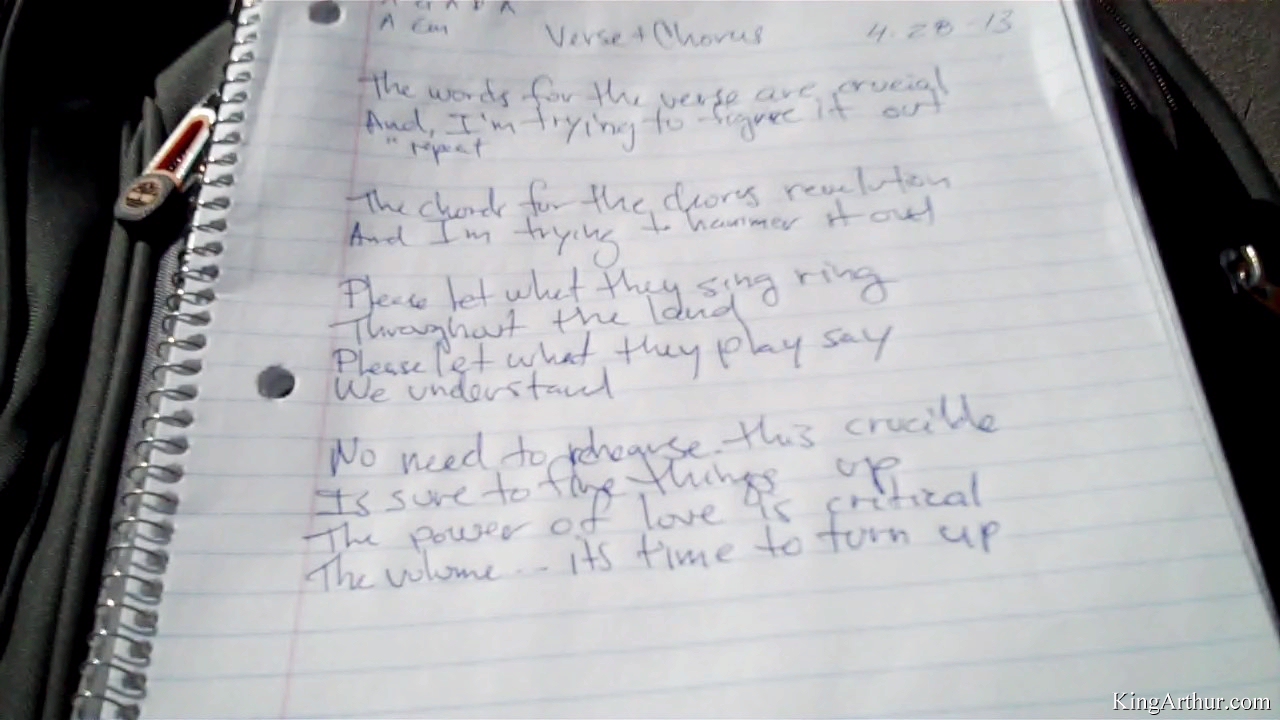 A Em
Verse + Chorus 4.28-13
The words for the verse are crucial
And, I'm trying to figure it out
" repeat
The chords for the chorus revolution
And I'm trying to hammer it out
Please let what they sing ring
Throughout the land
Please let what they play say
We understand
No need to rehearse this crucible
Is sure to fire things up
The power of love is critical
The volume... its time to turn up
KingArthur.com